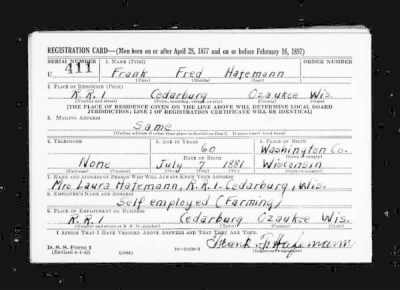 REGISTRATION CARD—(Men born on or after April 28, 1877 and on or before February 16, 1897)
SERIAL NUMBER 1. NAME (Print) ORDER NUMBER
U 411 Frank Fred Hafemann
(First) (Middle) (Last)
2. PLACE OF RESIDENCE (Print)
R.R.1 Cedarburg Ozaukee Wis.
(Number and street) (Town, township, village, or city) (County) (State)
[THE PLACE OF RESIDENCE GIVEN ON THE LINE ABOVE WILL DETERMINE LOCAL BOARD
JURISDICTION; LINE 2 OF REGISTRATION CERTIFICATE WILL BE IDENTICAL]
3. MAILING ADDRESS
Same
(Mailing address if other than place indicated on line 2. If same insert word same)
4. TELEPHONE 5. AGE IN YEARS 6. PLACE OF BIRTH
60 Washington Co.
DATE OF BIRTH (Town or county)
None July 7 1881 Wisconsin
(Exchange) (Number) (Mo.) (Day) (Yr.) (State or country)
7. NAME AND ADDRESS OF PERSON WHO WILL ALWAYS KNOW YOUR ADDRESS
Mrs. Laura Hafemann, R.R.1-Cedarburg, Wis.
8. EMPLOYER'S NAME AND ADDRESS
Self employed (Farming)
9. PLACE OF EMPLOYMENT OR BUSINESS
R.R.1 Cedarburg Ozaukee Wis.
(Number and street or R. F. D. number) (Town) (County) (State)
I AFFIRM THAT I HAVE VERIFIED ABOVE ANSWERS AND THAT THEY ARE TRUE.
D. S. S. Form 1 Frank F. Hafemann
(Revised 4-1-42) (over)